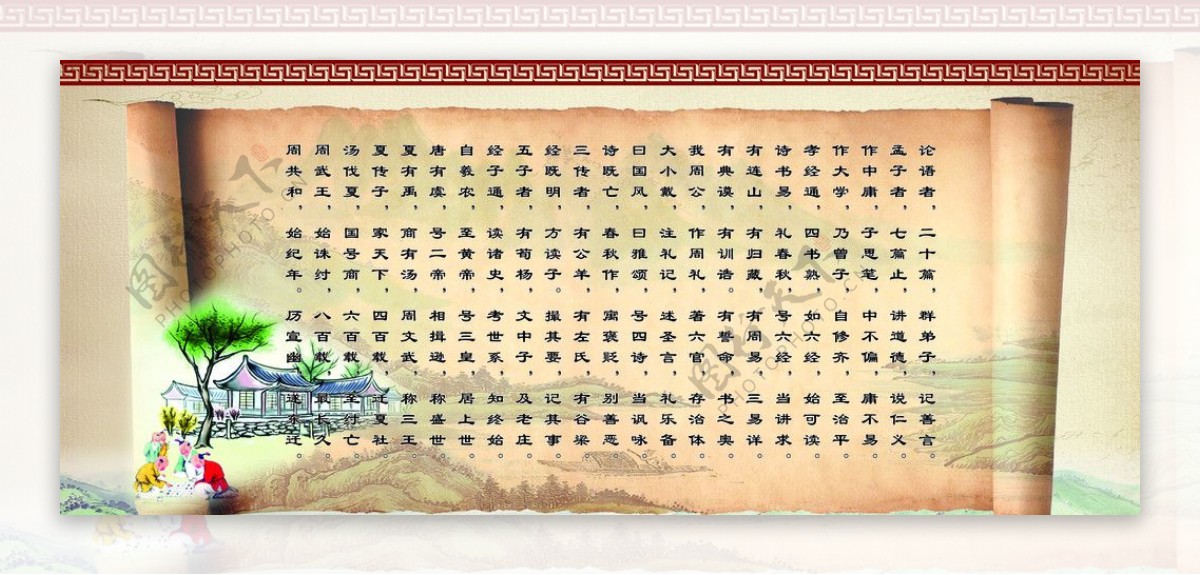 论语者，二十篇，群弟子，记善言。
孟子者，七篇止，讲道德，说仁义。
作中庸，子思笔，中不偏，庸不易。
作大学，乃曾子，自修齐，至治平。
孝经通，四书熟，如六经，始可读。
诗书易，礼春秋，号六经，当讲求。
有连山，有归藏，有周易，三易详。
有典谟，有训诰。有誓命，书之奥。
我周公，作周礼，著六官，存治体。
大小戴，注礼记，述圣言，礼乐备。
曰国风，曰雅颂，号四诗，当讽咏。
诗既亡，春秋作，寓褒贬，别善恶。
三传者，有公羊，有左氏，有谷梁。
经既明，方读子。撮其要，记其事。
五子者，有荀杨，文中子，及老庄。
经子通，读诸史，考世系，知终始。
自羲农，至黄帝，号三皇，居上世。
唐有虞，号二帝，相揖逊，称盛世。
夏有禹，商有汤，周文武，称三王。
夏传子，家天下，四百载，迁夏社。
汤伐夏，国号商，六百载，至纣亡。
周武王，始诛纣，八百载，最长久。
周共和，始纪年。历宣幽，遂东迁。